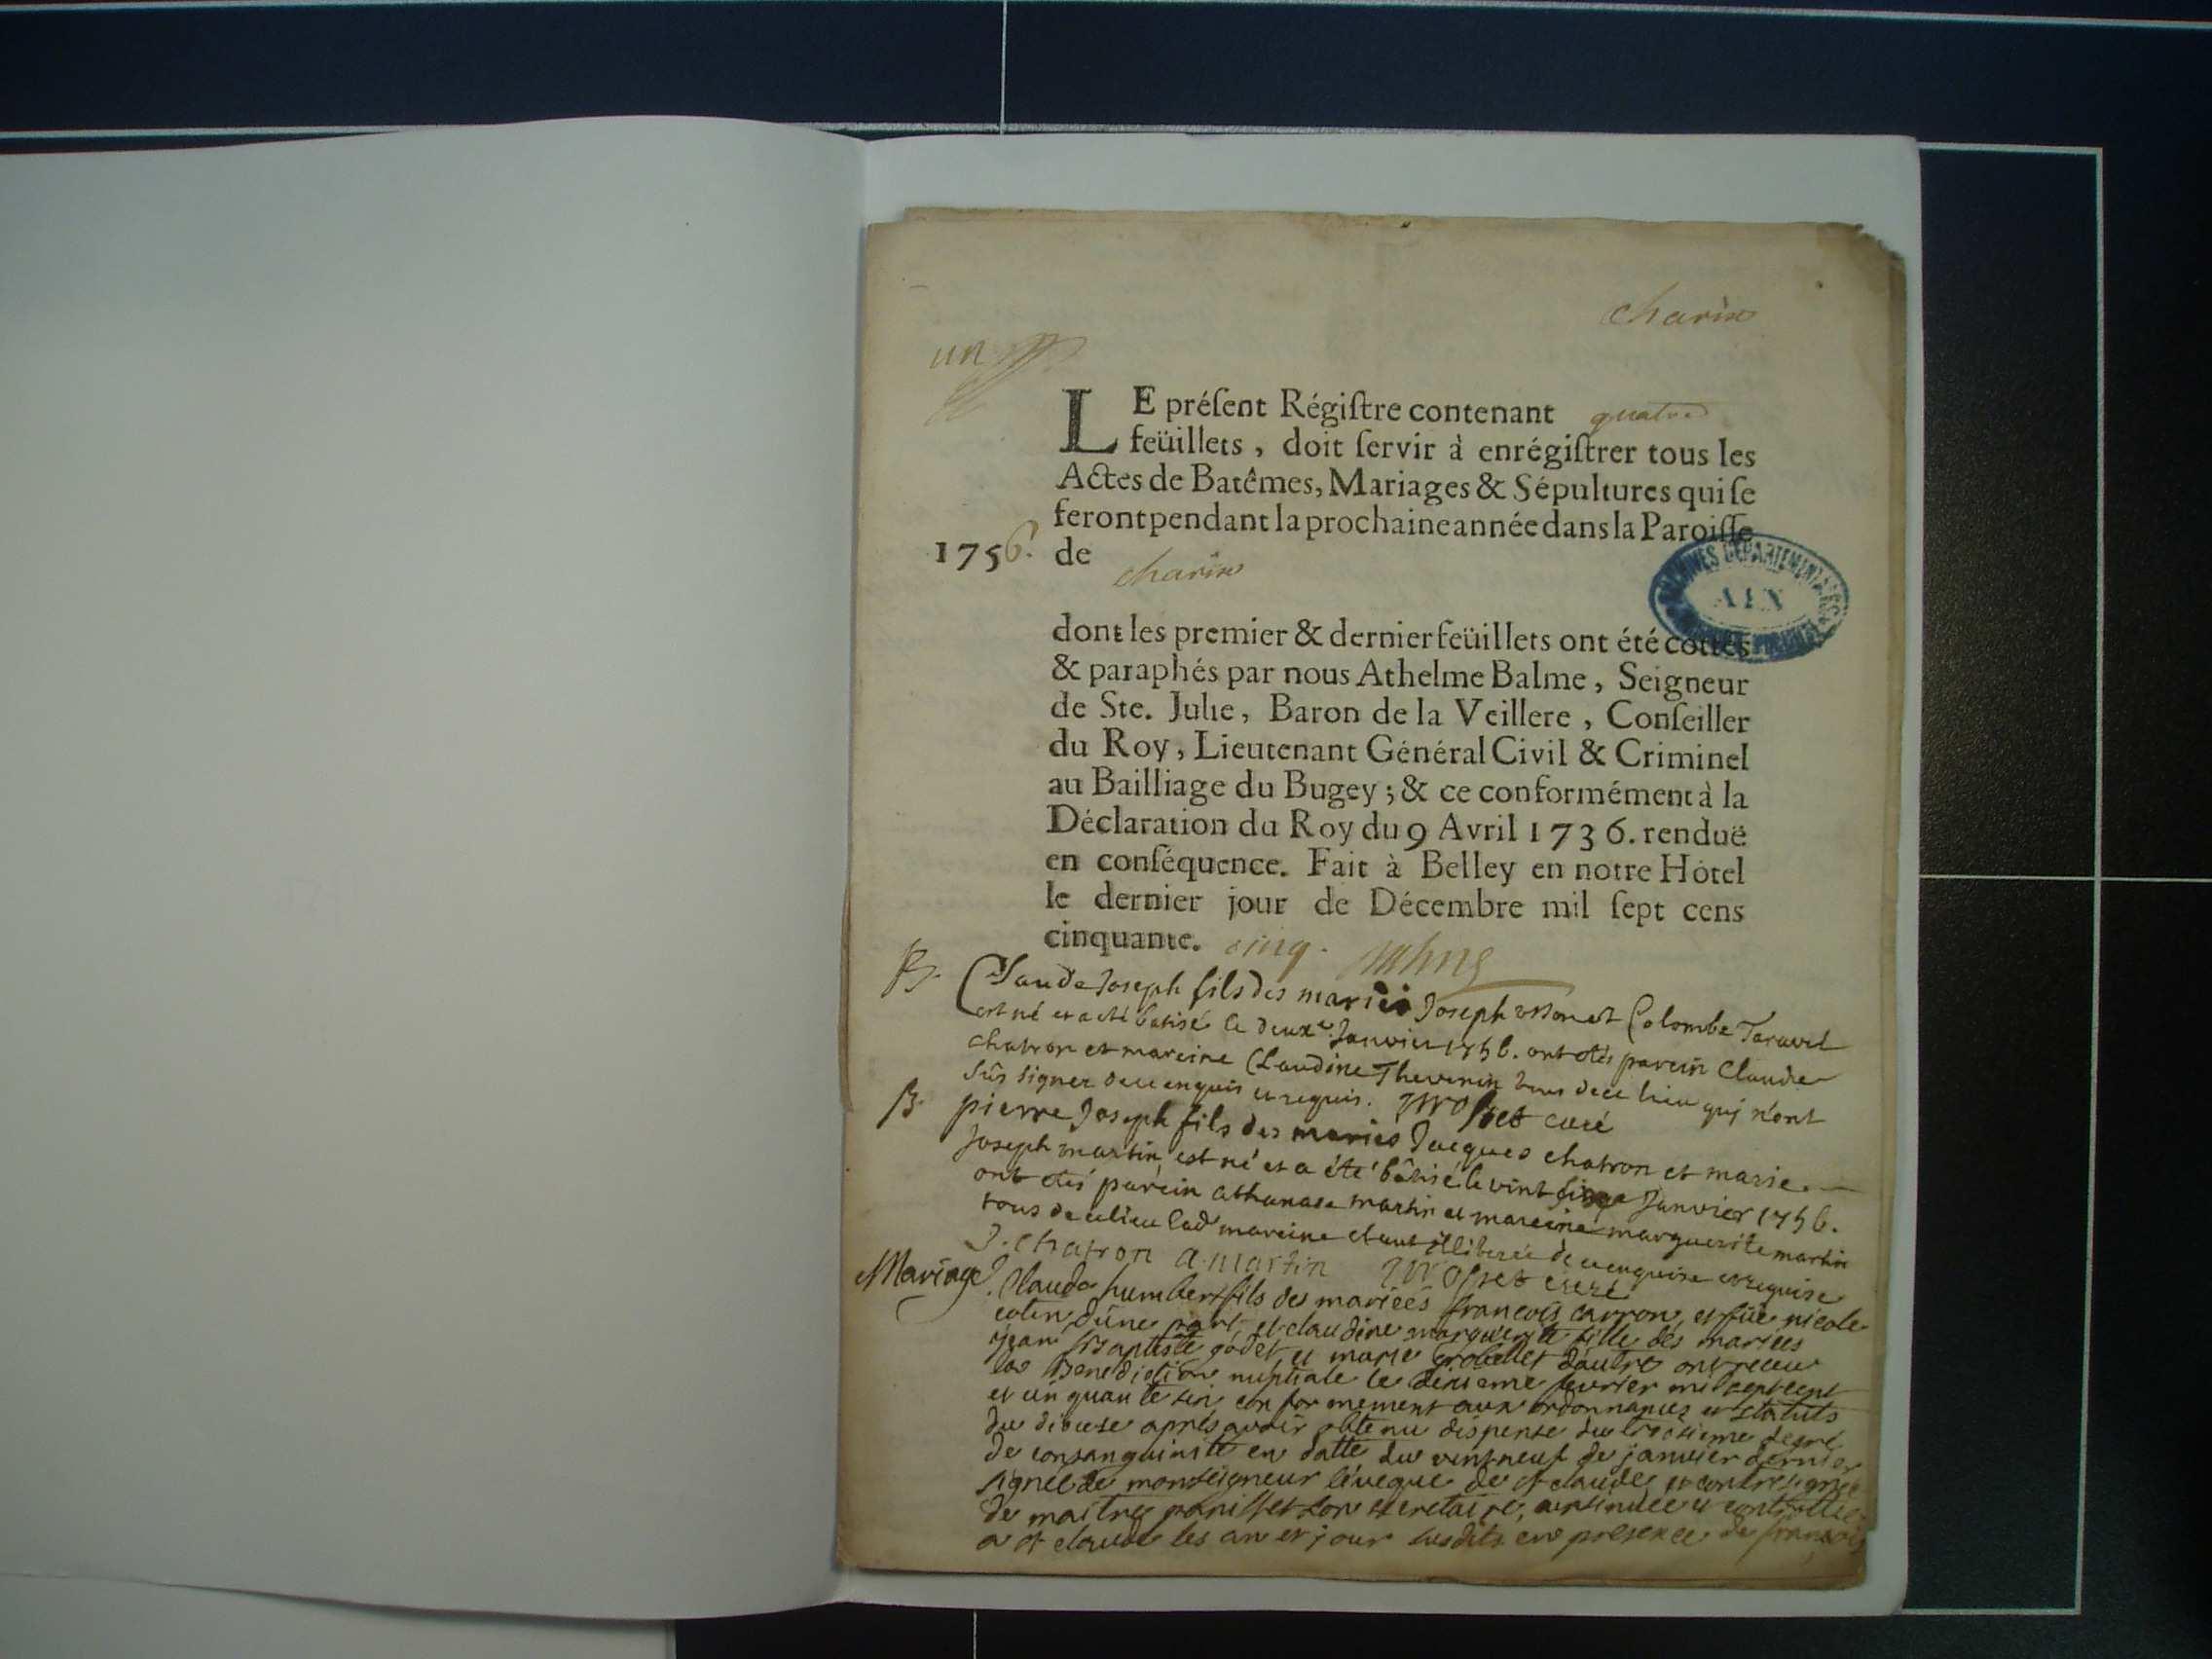 charix
un
LE préſent Régiſtre contenant quatre
feüillets, doit ſervir à enrégiſtrer tous les
Actes de Batêmes, Mariages & Sépultures qui ſe
feront pendant la prochaine année dans la Paroiſſe
1756. de
charix
ARCHIVES DEPARTEMENTALES
AIN
dont les premier & dernier feüillets ont été cottés
& paraphés par nous Athelme Balme, Seigneur
de Ste. Julie, Baron de la Veillere, Conſeiller
du Roy, Lieutenant Général Civil & Criminel
au Bailliage du Bugey; & ce conformément à la
Déclaration du Roy du 9 Avril 1736. renduë
en conſéquence. Fait à Belley en notre Hôtel
le dernier jour de Décembre mil ſept cens
cinquante. cinq.
B. Claude Joseph fils des mariés Joseph et Colombe Taravel
est né et a eté batisé le deuxe. Janvier 1756. ont etés parein Claude
chatron et mareine Claudine Thevenin tous de ce lieu qui n'ont
sûs signer de ce enquis et requis. curé
B. pierre Joseph fils des mariés Jacques chatron et marie
Joseph martin, est né et a été bâtisé le vint Janvier 1756.
ont etés parein athanase martin et mareine marguerite martin
tous de ce lieu lad mareine etant illiterée de ce enquise et requise
J. chatron a. martin curé
Mariage. Claude humbert fils des mariées francois carron, et füe nicole
colin d'une part, et claudine marguerite fille des mariées
jean Baptiste godet, et marie d'autre ont receu
la Benediction nuptiale le fevrier mil sept cent
et cinquante six conformement aux ordonnances et statuts
du diocese après avoir obtenu dispense du troisieme degré
de consanguinité en datte du vint neuf de janvier dernier
signée de monseigneur l'eveque de st claude, et contresignée
de maitre panisset son secretaire, et
a st claude les an et jour susdits en presence de francois